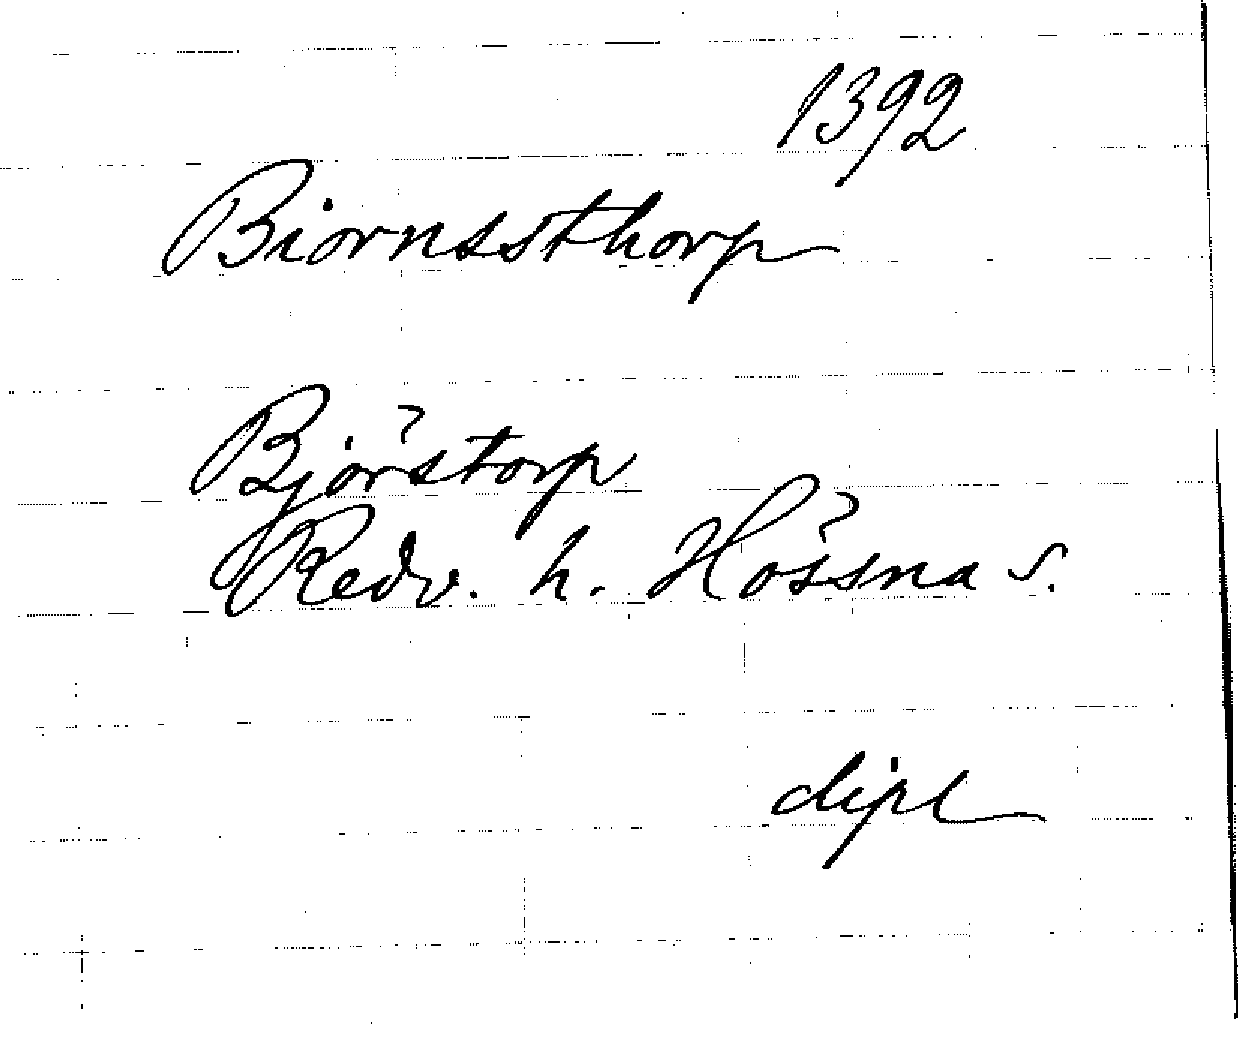 1392
Biornssthorp
Björstorp
Redv. h. Hössna s.
dipl